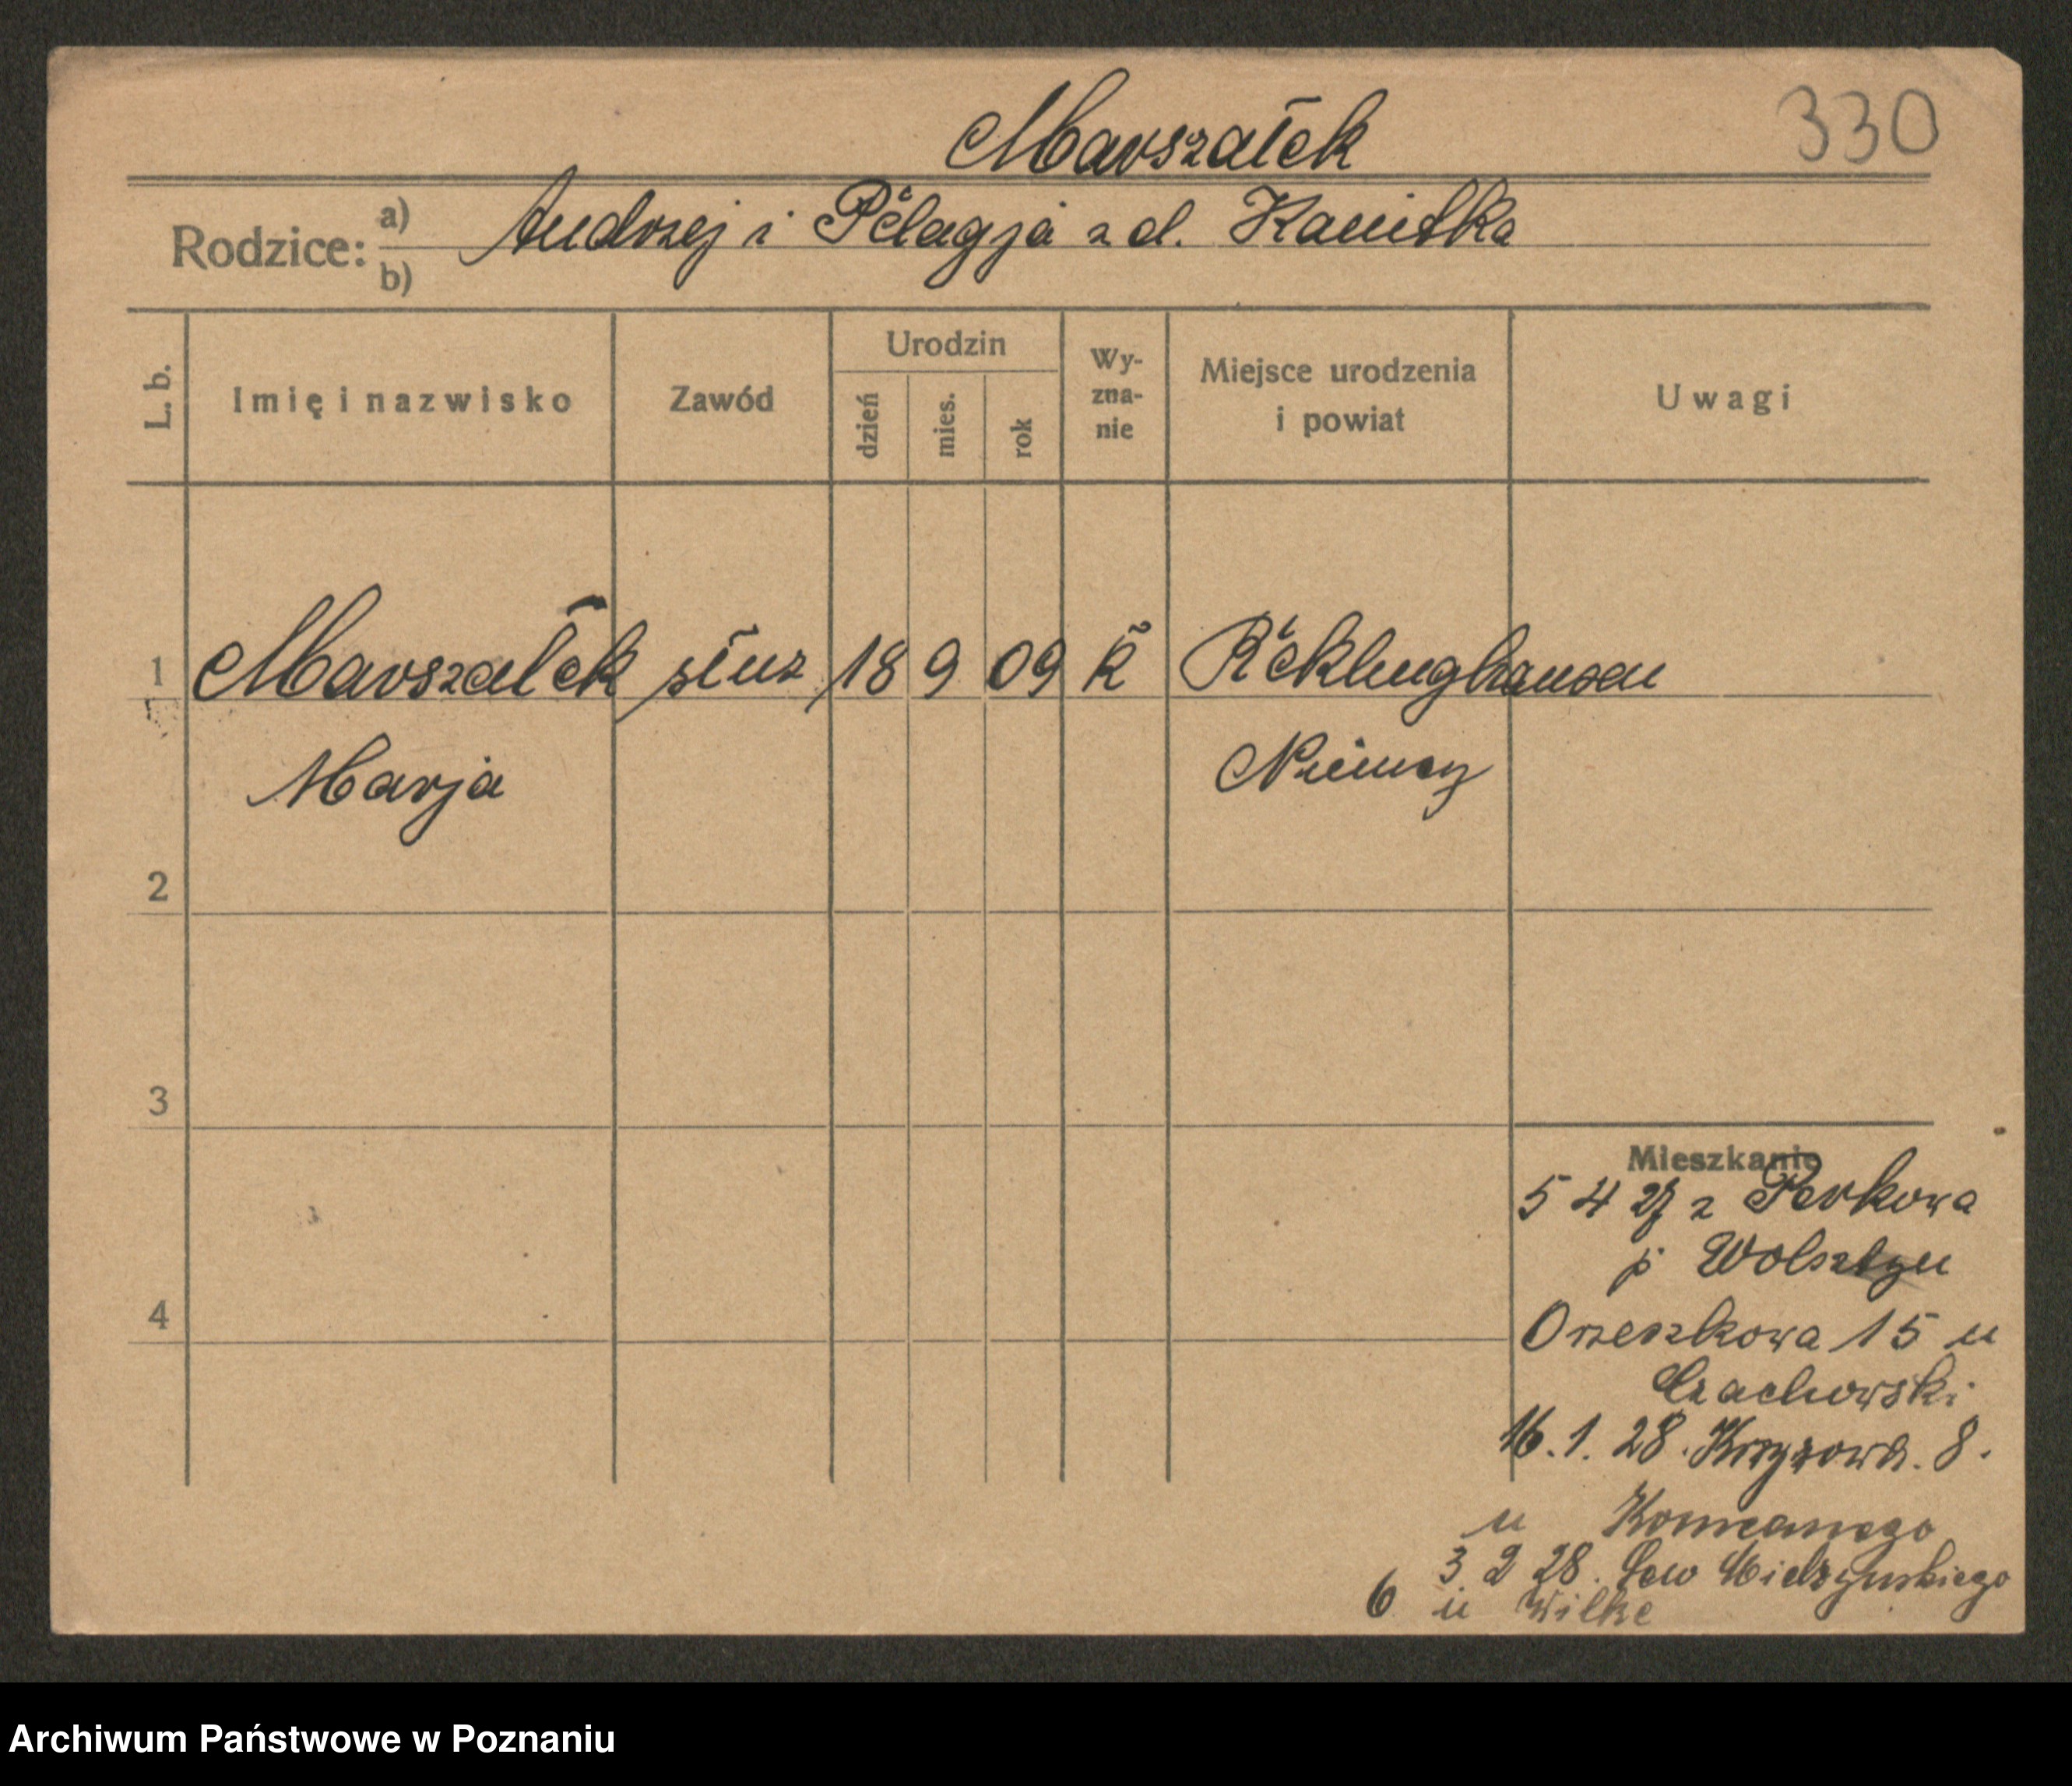 Marszałek
330
Rodzice: a) Andrzej i Pelagja z d. Kanitka
b)
L. b.
Imię i nazwisko
Zawód
Urodzin
dzień
mies.
rok
Wy-
zna-
nie
Miejsce urodzenia
i powiat
Uwagi
1 Marszałek służ 18 9 09 k Recklinghausen
Marja
Niemcy
2
3
4
Mieszkanie
5 4 27 z Perkowa
p Wolsztyn
Orzeszkowa 15 u
Czachowski
16.1.28. Krzyżowa. 8.
u
3 2 28. Sew Mielżyńskiego
6 u Wilke
Archiwum Państwowe w Poznaniu